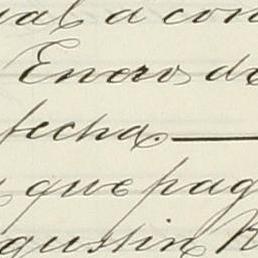 ual a con
Enero de
fecha
que pag
gustin R